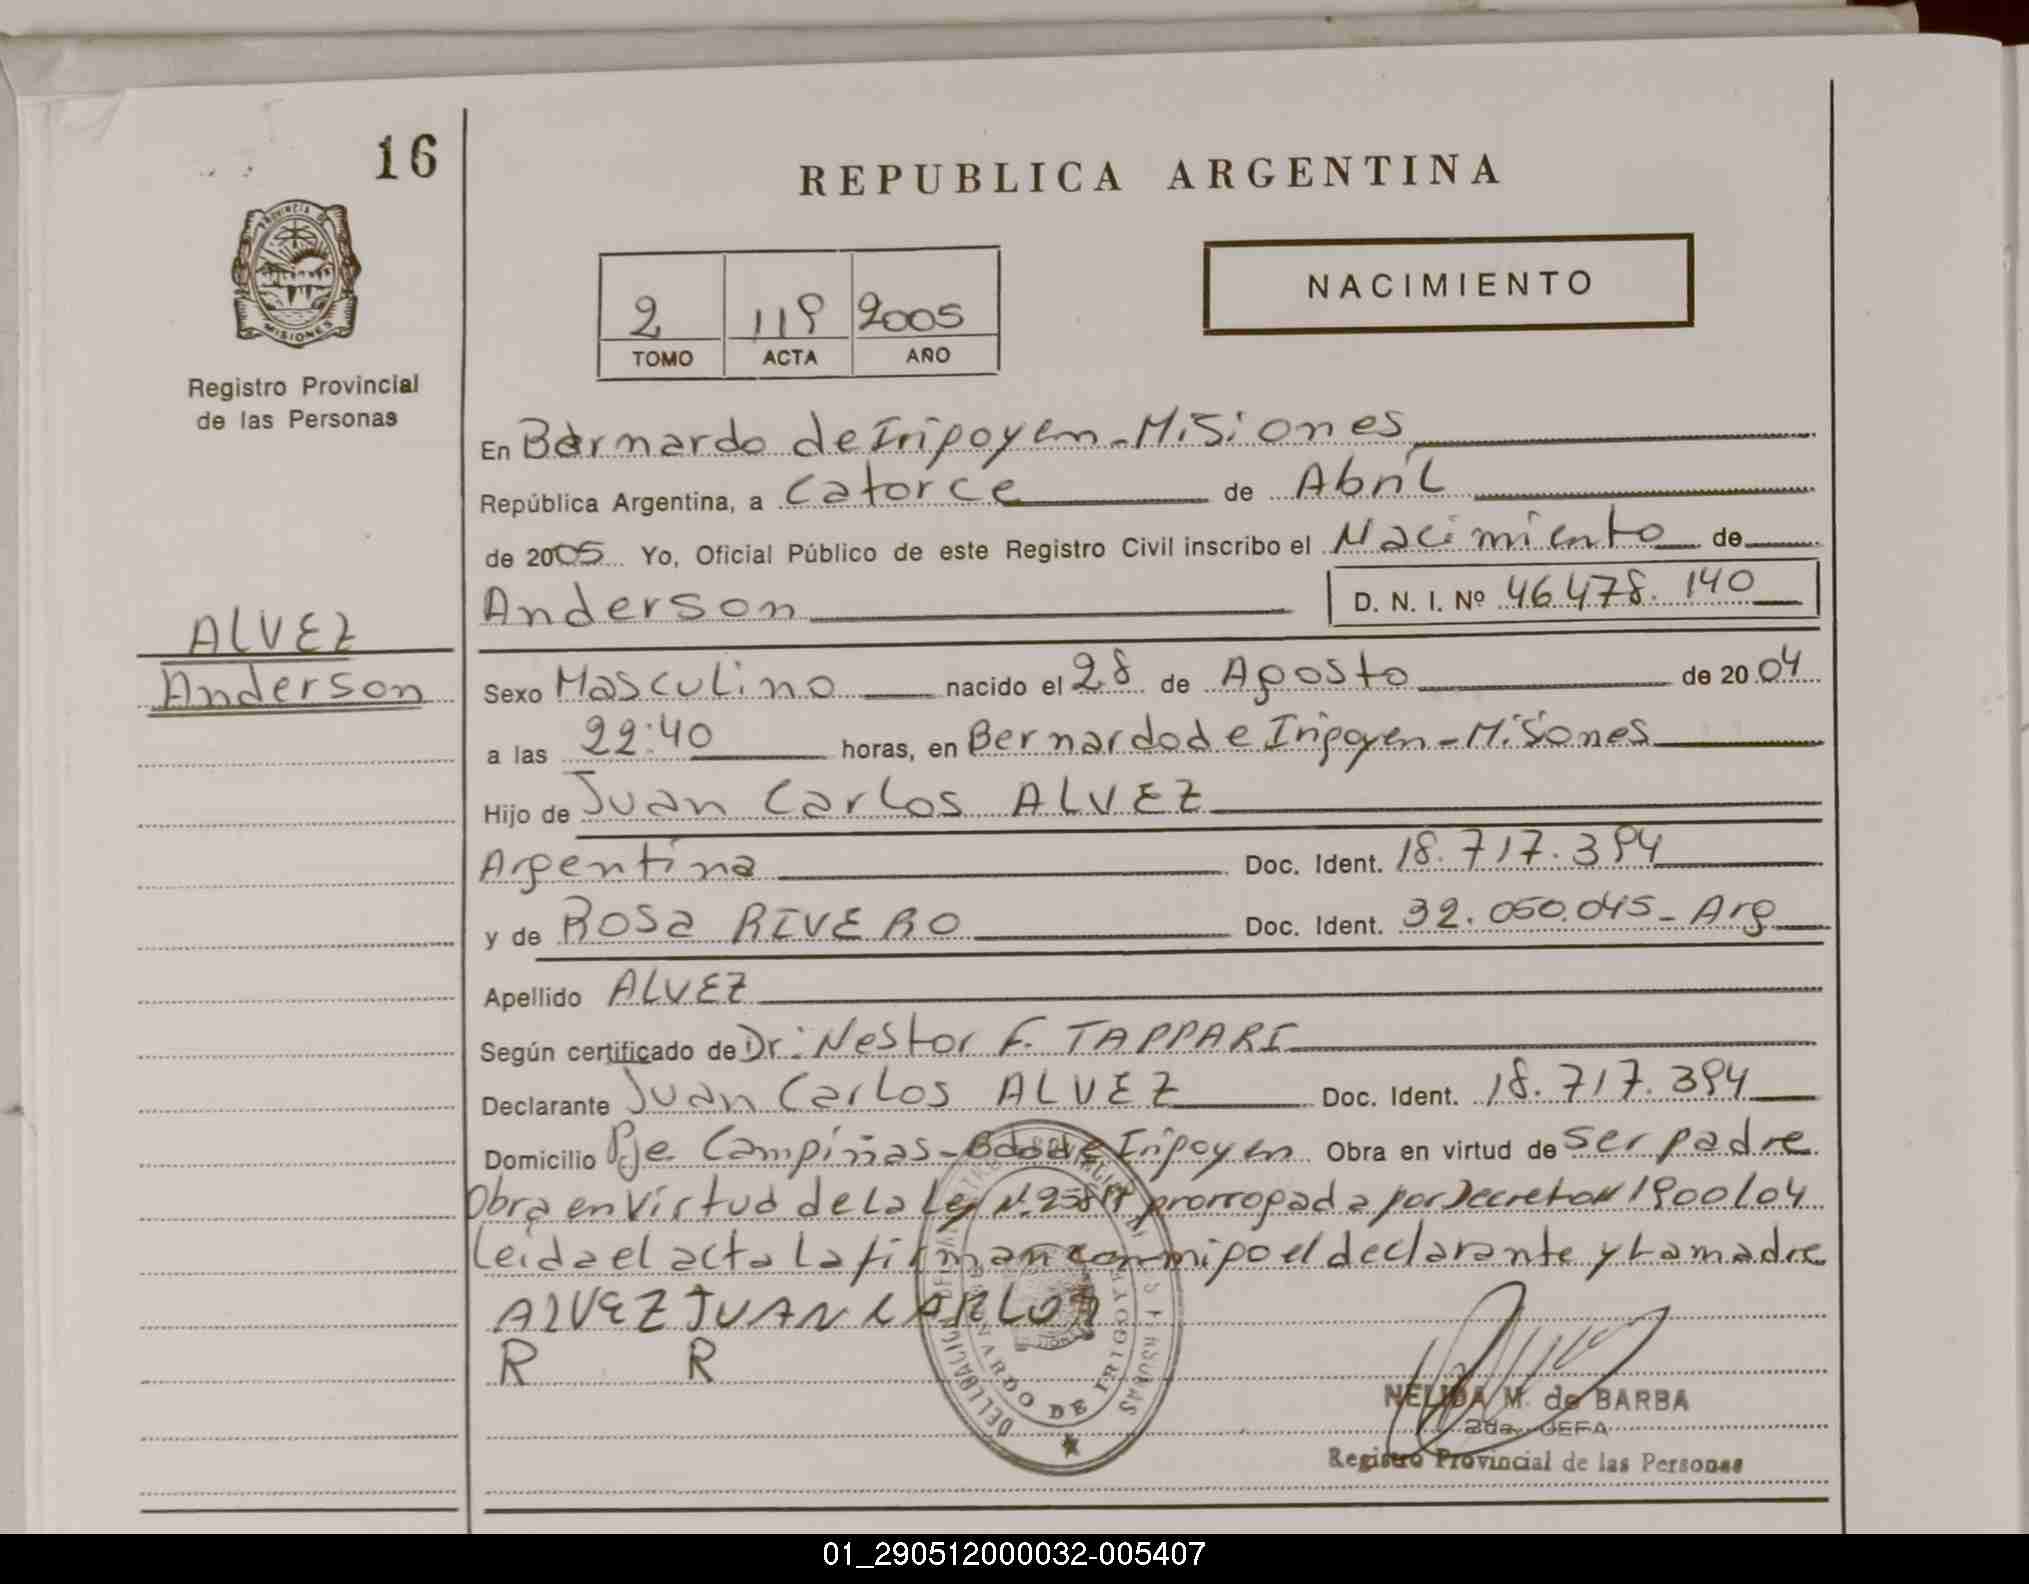 16
REPUBLICA ARGENTINA
PROVINCIA DE
MISIONES
Registro Provincial
de las Personas
NACIMIENTO
2 119 2005
TOMO ACTA AÑO
En Bernardo de Irigoyen - Misiones
República Argentina, a Catorce de Abril
de 2005 Yo, Oficial Público de este Registro Civil inscribo el Nacimiento de
Anderson D. N. I. Nº 46.478.140
ALVEZ
Anderson
Sexo Masculino nacido el 28 de Agosto de 2004
a las 22:40 horas, en Bernardo de Irigoyen - Misiones
Hijo de Juan Carlos ALVEZ
Argentina Doc. Ident. 18.717.394
y de Rosa RIVERO Doc. Ident. 32.050.045 - Arg
Apellido ALVEZ
Según certificado de Dr: Nestor F. TAPPARI
Declarante Juan Carlos ALVEZ Doc. Ident. 18.717.394
Domicilio Pje. Campiñas - Bdo de Irigoyen Obra en virtud de ser padre
Obra en Virtud de la Ley N. prorrogada por Decreto N 1900/04
Leida el acta la firman conmigo el declarante y La madre
ALVEZ JUAN CARLOS
R R
BERNARDO DE IRIGOYEN
NELIDA M. de BARBA
2da. JEFA
Registro Provincial de las Personas
01_290512000032-005407